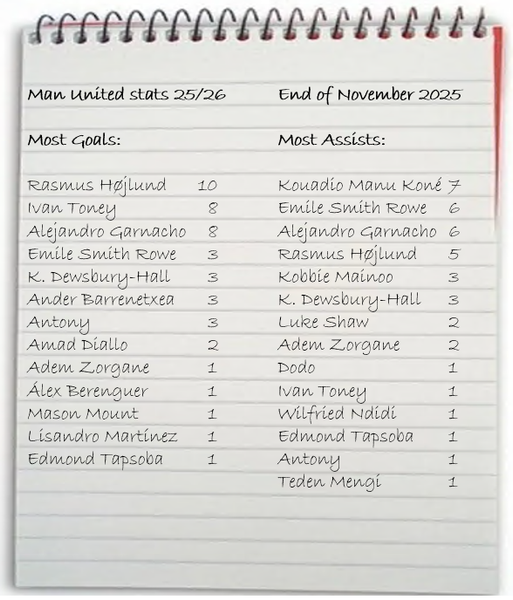 Man United stats 25/26 End of November 2025
Most Goals: Most Assists:
Rasmus Højlund 10 Kouadio Manu Koné 7
Ivan Toney 8 Emile Smith Rowe 6
Alejandro Garnacho 8 Alejandro Garnacho 6
Emile Smith Rowe 3 Rasmus Højlund 5
K. Dewsbury-Hall 3 Kobbie Mainoo 3
Ander Barrenetxea 3 K. Dewsbury-Hall 3
Antony 3 Luke Shaw 2
Amad Diallo 2 Adem Zorgane 2
Adem Zorgane 1 Dodo 1
Álex Berenguer 1 Ivan Toney 1
Mason Mount 1 Wilfried Ndidi 1
Lisandro Martínez 1 Edmond Tapsoba 1
Edmond Tapsoba 1 Antony 1
Teden Mengi 1